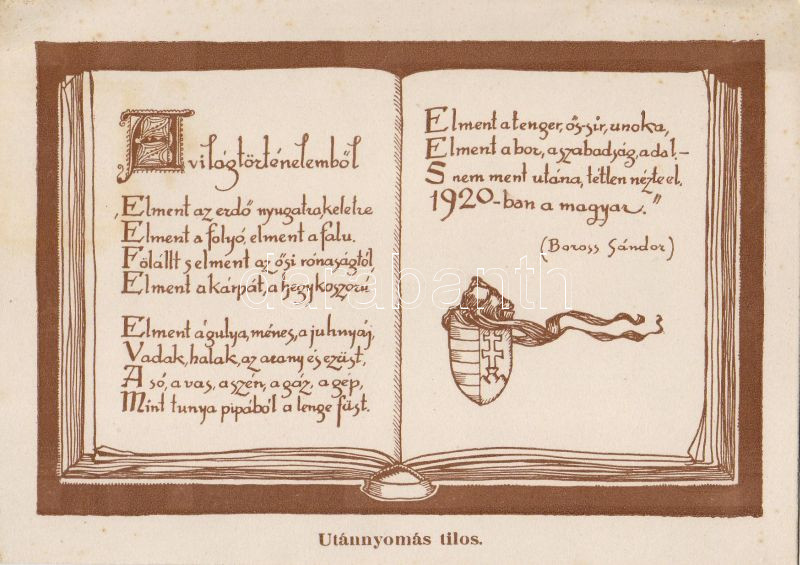 A világtörténelemből
„Elment az erdő nyugatra, keletre
Elment a folyó, elment a falu.
Fölállt s elment az ősi rónaságtól
Elment a kárpát, a hegykoszorú,
Elment a gulya, ménes, a juhnyáj,
Vadak, halak, az arany és ezüst,
A só, a vas, a szén, a gáz, a gép,
Mint tunya pipából a lenge füst.
Elment a tenger, ős-sir, unoka,
Elment a bor, a szabadság, a dal. –
S nem ment utána, tétlen nézte el.
1920-ban a magyar."
(Boross Sándor)
darabanth
Utánnyomás tilos.